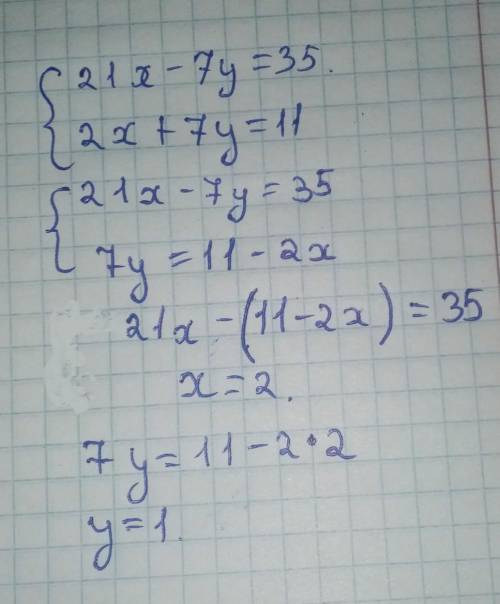 21x - 7y = 35.
2x + 7y = 11
21x - 7y = 35
7y = 11 - 2x
21x - (11 - 2x) = 35
x = 2.
7y = 11 - 2 · 2
y = 1.